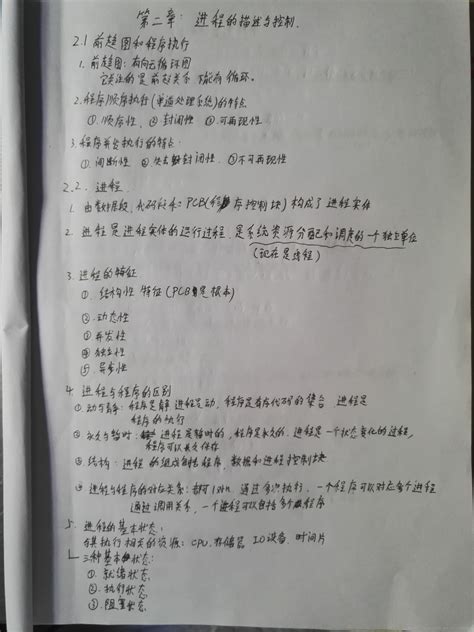 第二章：进程的描述与控制.
2.1 前趋图和程序执行
1. 前趋图：有向无循环图
它关注的是前趋关系 不能有循环。
2.程序顺序执行(单道处理系统)的特点
①.顺序性、②封闭性 ③.可再现性
3.程序并发执行的特点
①.间断性 ②.失去封闭性、③不可再现性
2.2. 进程.
1. 由数据段、代码段和PCB(程序控制块)构成了进程实体
2. 进程是进程实体的运行过程，是系统资源分配和调度的一个独立单位
(现在是线程)
3.进程的特征
①. 结构性特征(PCB是根本)
②.动态性
③.并发性
④.独立性
⑤.异步性
4. 进程与程序的区别
①动与静：程序是静 进程是动，程序是有序代码的集合 进程是
程序的执行
②永久与暂时：进程是暂时的，程序是永久的.进程是一个状态变化的过程，
程序可以长久保存
③.结构：进程的组成包括程序，数据和进程控制块
④进程与程序的对应关系：通过多次执行，一个程序可以对应多个进程
通过调用关系，一个进程可以包括多个程序
5. 进程的基本状态：
与其执行相关的资源：CPU、存储器 IO设备、时间片
三种基本状态：
①.就绪状态
②.执行状态
③.阻塞状态